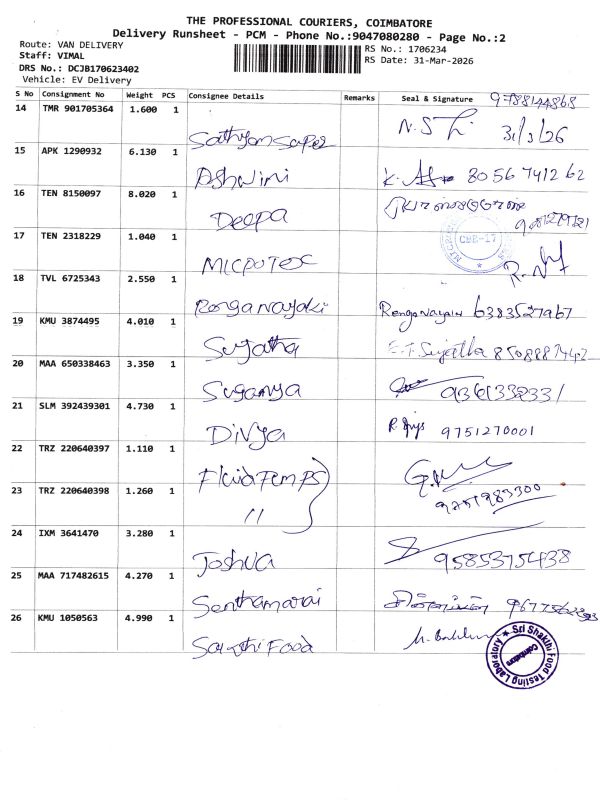 THE PROFESSIONAL COURIERS, COIMBATORE
Delivery Runsheet - PCM - Phone No.:9047080280 - Page No.:2
Route: VAN DELIVERY
Staff: VIMAL
DRS No.: DCJB170623402
Vehicle: EV Delivery
RS No.: 1706234
RS Date: 31-Mar-2026
S No Consignment No Weight PCS Consignee Details Remarks Seal & Signature 9788144868
14 TMR 901705364 1.600 1 31/3/26
15 APK 1290932 6.130 1 Ashwini 80567 41262
16 TEN 8150097 8.020 1 Deepa
17 TEN 2318229 1.040 1 CBE-17
18 TVL 6725343 2.550 1 Ronganayaki 6383527967
19 KMU 3874495 4.010 1 Sujatha E.T. Sujatha
20 MAA 650338463 3.350 1 Suganya
21 SLM 392439301 4.730 1 Divya 9751270001
22 TRZ 220640397 1.110 1
23 TRZ 220640398 1.260 1 "
24 IXM 3641470 3.280 1 Joshua 9585375438
25 MAA 717482615 4.270 1 Senthamarai
26 KMU 1050563 4.990 1 Food
Sri Shakthi Food Testing Laboratory
Coimbatore